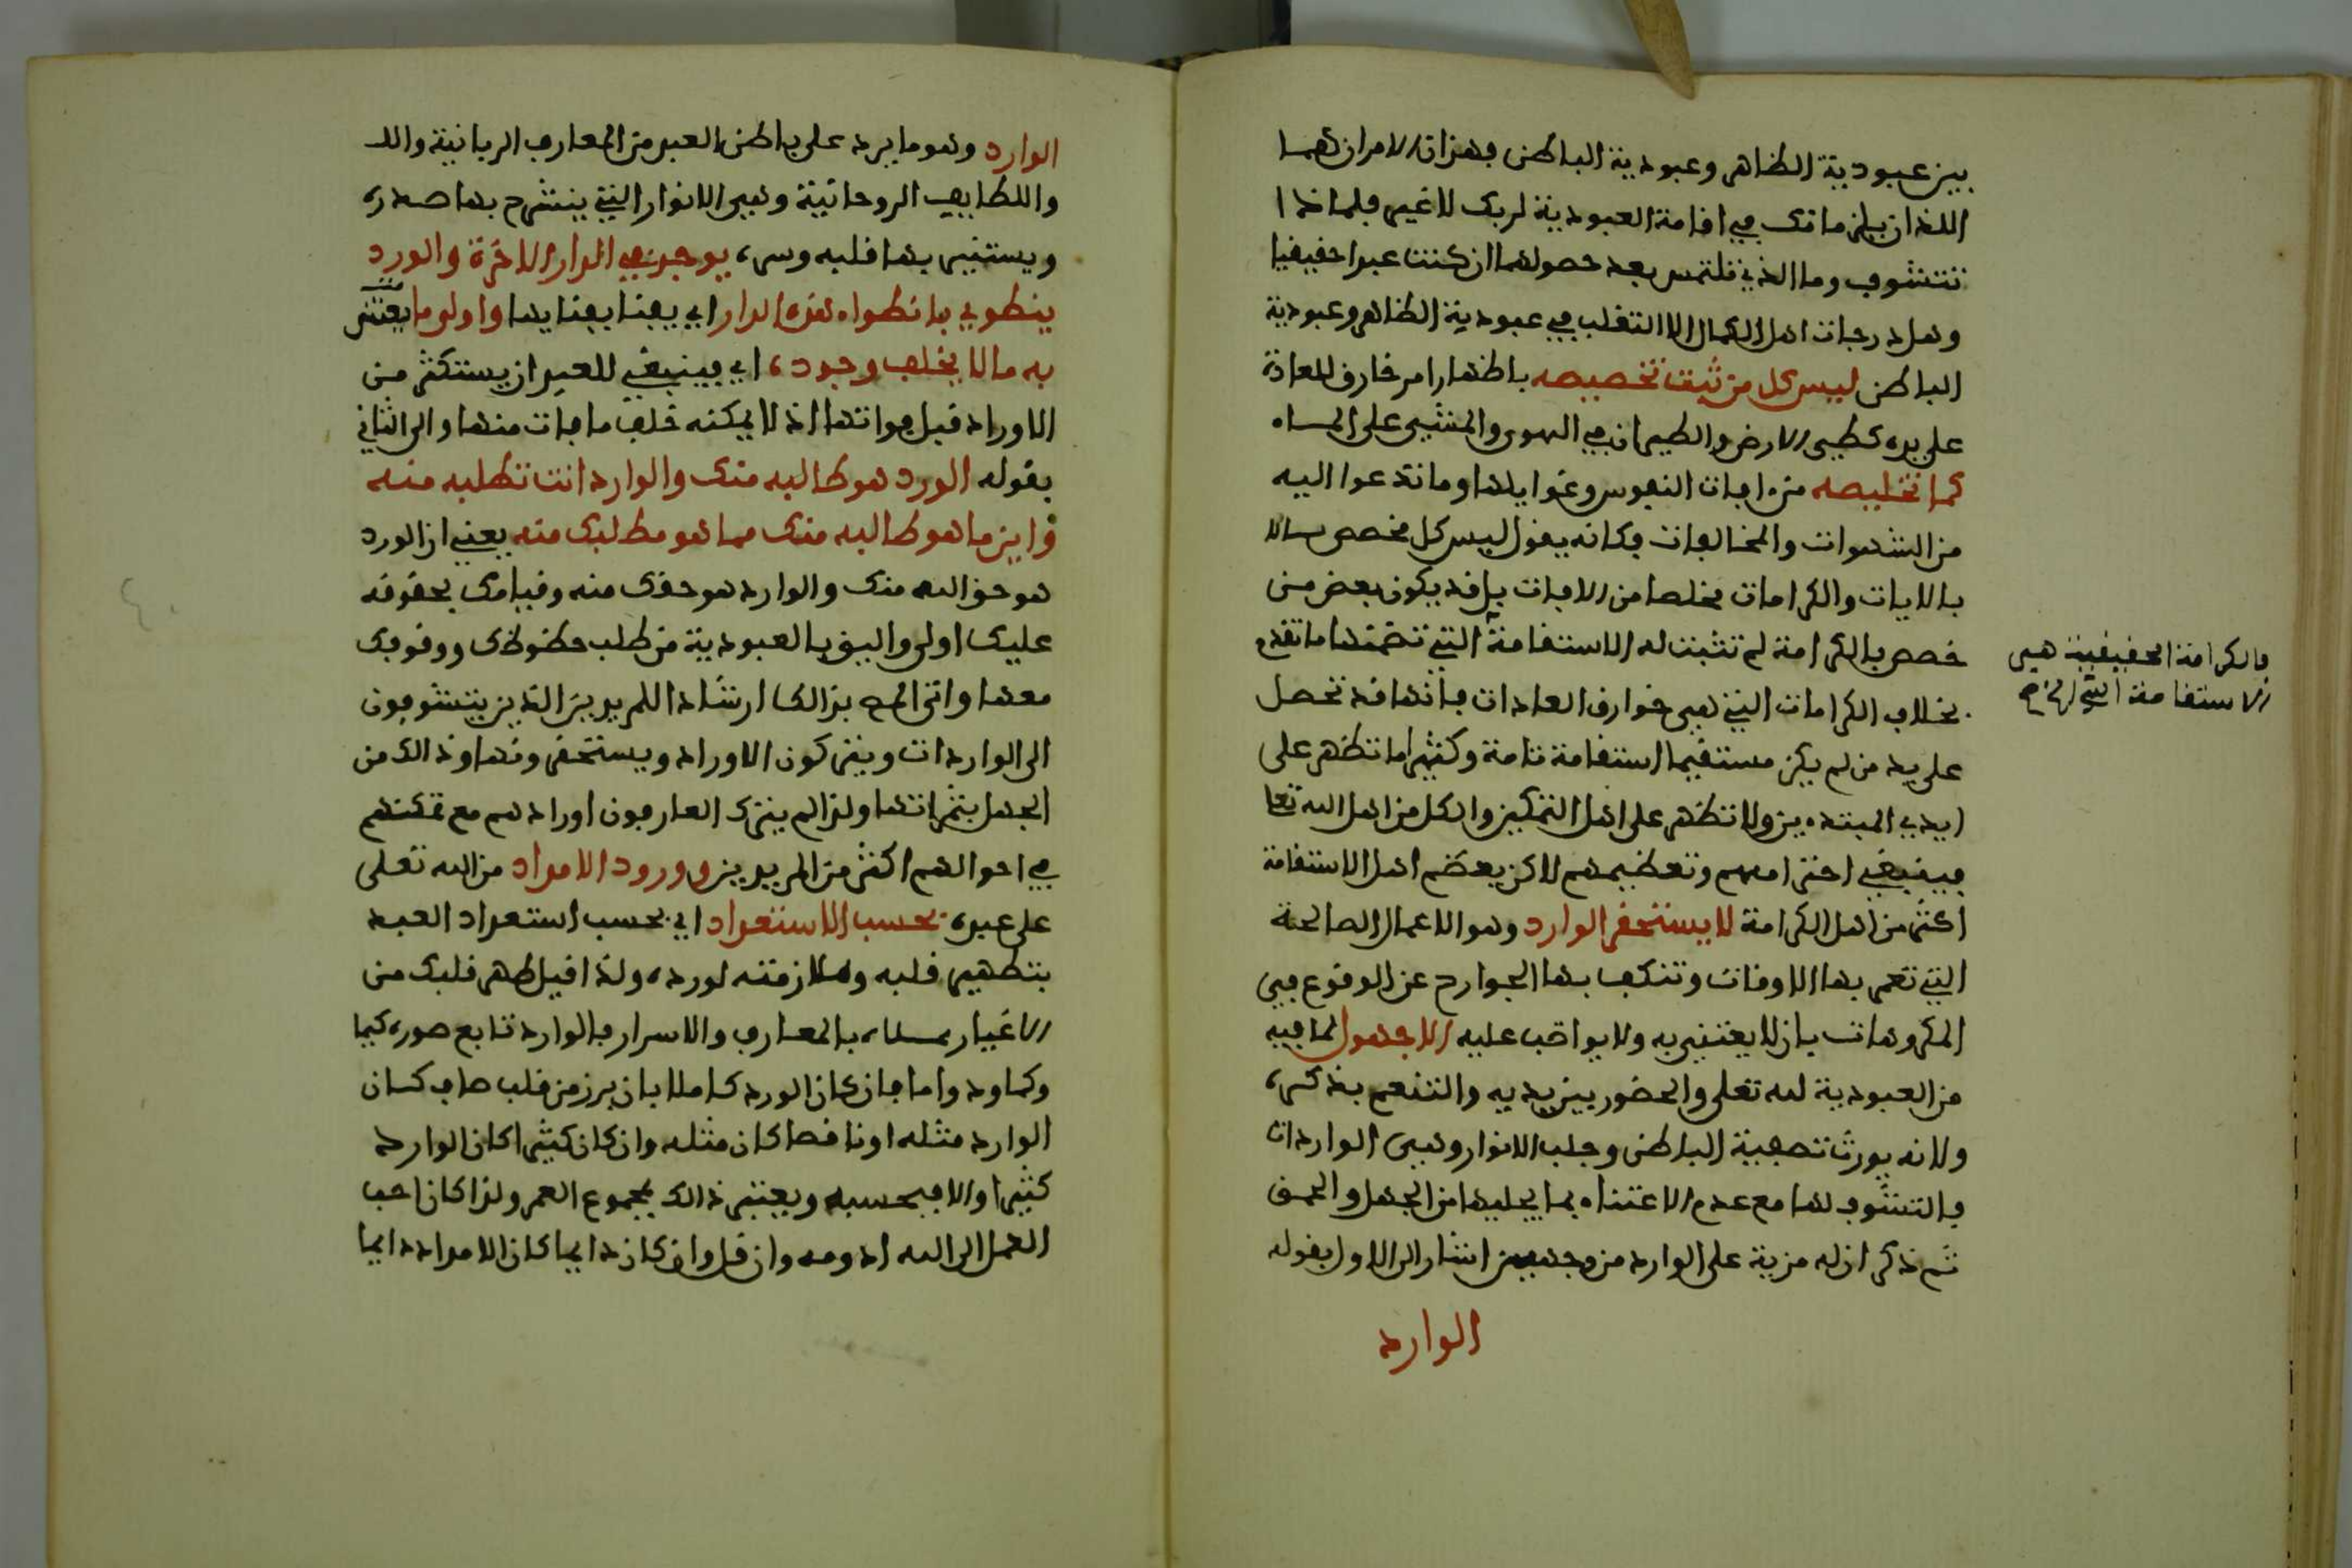 بين عبودية الظاهر وعبودية الباطن فهذان الامران هما
اللذان يلزمانك في اقامة العبودية لربك لا غير فلماذا
تتشوف وما الذي تلتمس بعد حصولهما ان كنت عبدا حقيقيا
وهل درجات اهل الكمال الا التقلب في عبودية الظاهر وعبودية
الباطن ليس كل من ثبت تخصيصه باظهار امر خارق للعادة
على يده كطي الارض والطيران في الهوى والمشي على الماء
كمل تخليصه من افات النفوس وغوايلها وما تدعوا اليه
من الشهوات والمخالفات فكانه يقول ليس كل مخصص
بالايات والكرامات مخلصا من الافات بل قد يكون بعض من
خصص بالكرامة لم تثبت له الاستقامة التي تضمنها ما تقدم
فالكرامة الحقيقية هي
الاستقامة التي الخ صح
بخلاف الكرامات التي هي خوارق العادات فانها قد تحصل
على يد من لم يكن مستقيما استقامة تامة وكثيرا ما تظهر على
ايدي المبتدءين ولا تظهر على اهل التمكين والكل من اهل الله تعا
فينبغي احترامهم وتعظيمهم لاكن يعظم اهل الاستقامة
اكثر من اهل الكرامة لا يستحقر الوارد وهو الاعمال الصالحة
التي تعمر بها الاوقات وتنكف بها الجوارح عن الوقوع في
المكروهات بان لا يعتني به ولا يواظب عليه الا جهول لما فيه
من العبودية لله تعلى والحضور بين يديه والتنعم بذكره
ولانه يورث تصفية الباطن وجلب الانوار وهي الواردات
فالتشوف لها مع عدم الاعتناء بما يجلبها من الجهل والحمق
ثم ذكر ان له مزية على الوارد من وجهين اشار الى الاول بقوله
الوارد
الوارد وهو ما يرد على باطن العبد من المعارف الربانية والل
واللطايف الروحانية وهي الانوار التي ينشرح بها صدره
ويستنير بها قلبه وسره يوجد في الدار الاخرة والورد
ينطوي بانطواء هذه الدار اي يفنا بفنايها واولى ما يعتنى
به ما لا يخلف وجوده اي فينبغي للعبد ان يستكثر من
الاوراد قبل فواتها اذ لا يمكنه خلف ما فات منها والى الثاني
بقوله الورد هو طالبه منك والوارد انت تطلبه منه
واين ما هو طالبه منك مما هو مطلبك منه يعني ان الورد
هو حق الله منك والوارد هو حقك منه وقيامك بحقوقه
عليك اولى واليق بالعبودية من طلب حظوظك ووقوفك
معها واتى المص بذالك ارشادا للمريدين الذين يتشوفون
الى الواردات ويتركون الاوراد ويستحقرونها وذالك من
الجهل بثمراتها ولذا لم يترك العارفون اورادهم مع تمكنهم
في احوالهم اكثر من المريدين وورود الامداد من الله تعلى
على عبده بحسب الاستعداد اي بحسب استعداد العبد
بتطهير قلبه وملازمته لورده ولذا قيل طهر قلبك من
الاغيار يملاء بالمعارف والاسرار فالوارد تابع
وكما ودواما فان كان الورد كاملا بان برز من قلب صاف كان
الوارد مثله او ناقصا كان مثله وان كان كثيرا كان الوارد
كثيرا والا فبحسبه ويعتبر ذالك بمجموع العمر ولذا كان احب
العمل الى الله ادومه وان قل وان كان دايما كان الامداد دايما